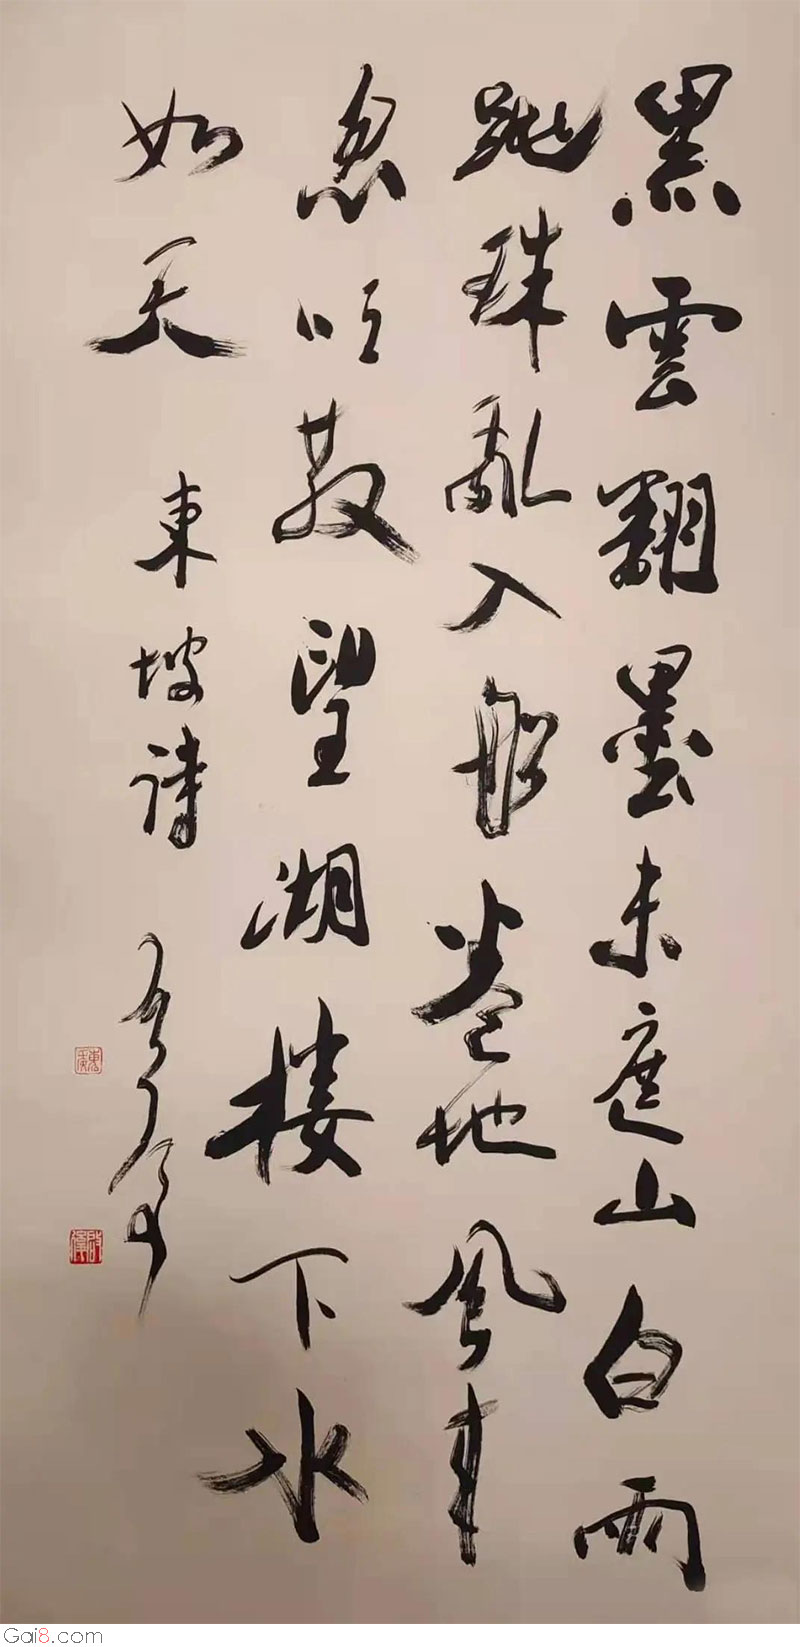 黑雲翻墨未遮山白雨
跳珠亂入船卷地風来
忽吹散望湖楼下水
如天
東坡詩
Gai8.com